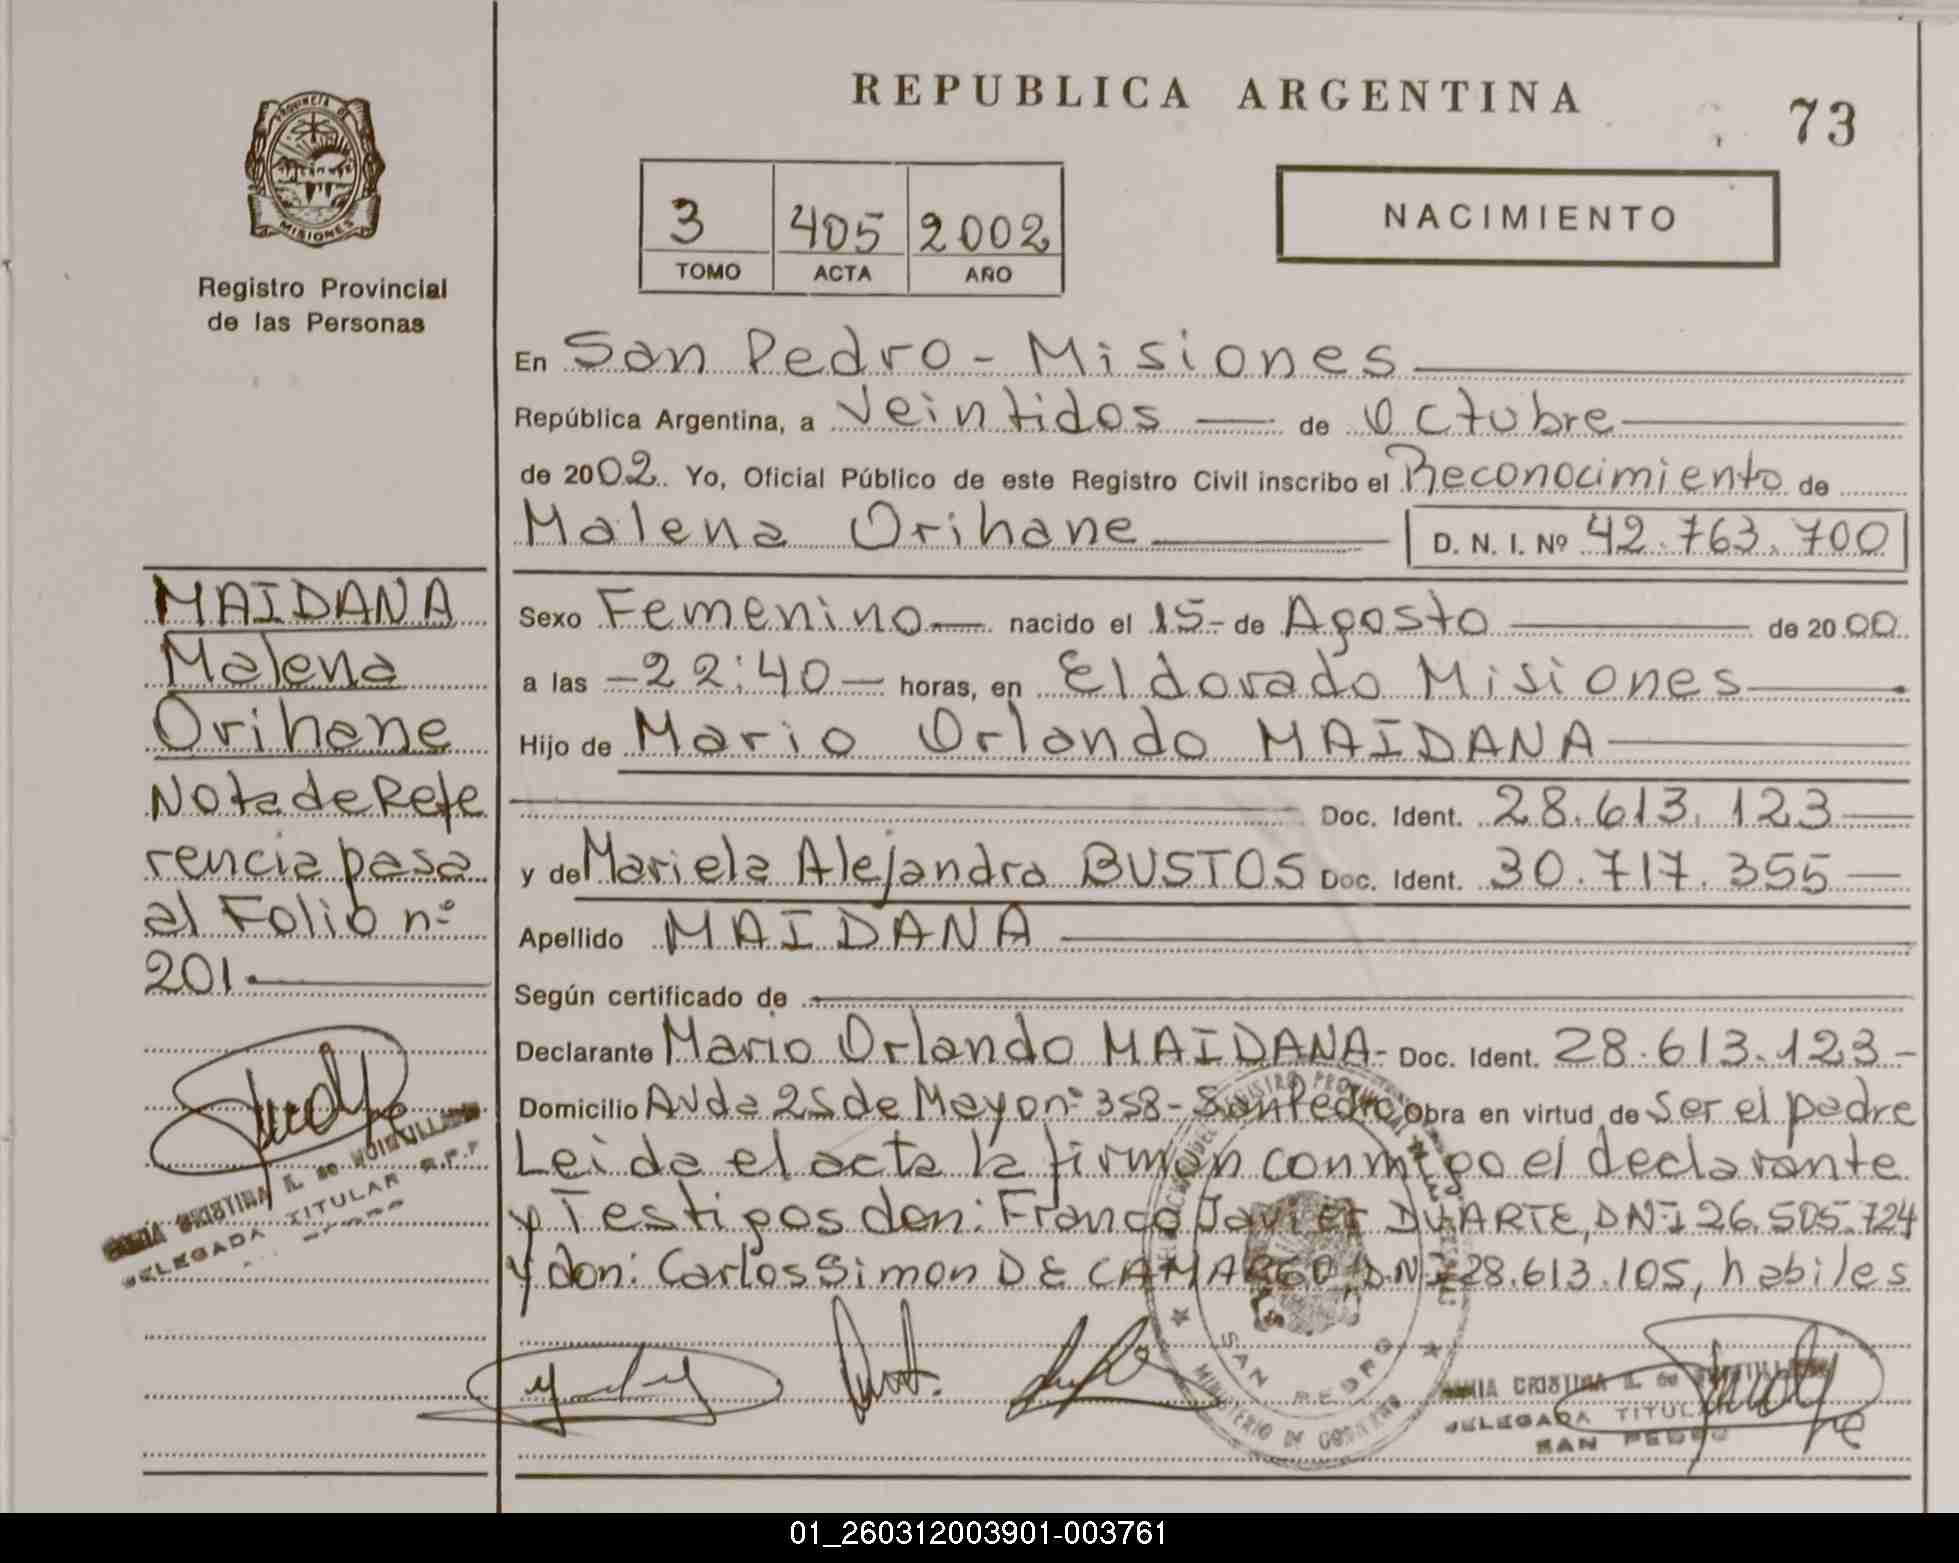 REPUBLICA ARGENTINA
73
PROVINCIA DE
MISIONES
Registro Provincial
de las Personas
3 405 2002
TOMO ACTA AÑO
NACIMIENTO
En San Pedro - Misiones
República Argentina, a Veintidos de Octubre
de 2002. Yo, Oficial Público de este Registro Civil inscribo el Reconocimiento de
Malena Orihane D. N. I. Nº 42.763.700
Sexo Femenino nacido el 15- de Agosto de 2000
a las -22:40- horas, en Eldorado Misiones
Hijo de Mario Orlando MAIDANA
Doc. Ident. 28.613.123
y de Mariela Alejandra BUSTOS Doc. Ident. 30.717.355
Apellido MAIDANA
Según certificado de
Declarante Mario Orlando MAIDANA- Doc. Ident. 28.613.123-
Domicilio Avda 25 de Mayo nº 358- San Pedro Obra en virtud de ser el padre
Leida el acta la firman conmigo el declarante
y Testigos don: Franco Javier DUARTE, DNI 26.505.724
y don: Carlos Simon DE CAMARGO, D.N.I 28.613.105, habiles
MAIDANA
Malena
Orihane
Nota de Refe
rencia pasa
al Folio nº
201
CRISTINA
DELEGADA TITULAR
SAN PEDRO
MINISTERIO DE GOBIERNO
CRISTINA
DELEGADA TITULAR
SAN PEDRO
01_260312003901-003761